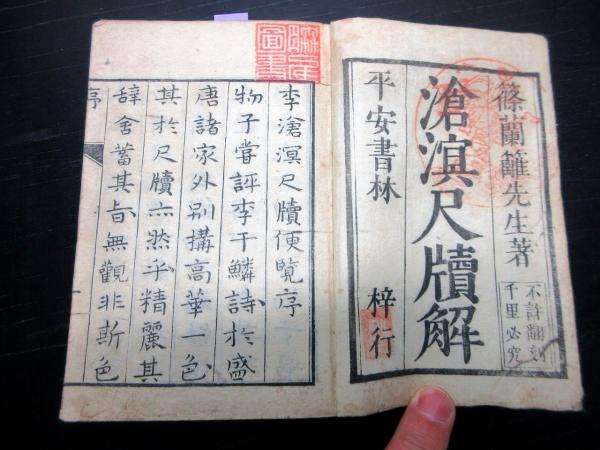 篠蘭籬先生著
不許翻刻
千里必究
滄溟尺牘解
平安書林
梓行
李滄溟尺牘便覽序
物子嘗評李于鱗詩於盛
唐諸家外別搆高華一色
其於尺牘亦然乎精麗其
辭含蓄其旨無觀非斯色
序
一